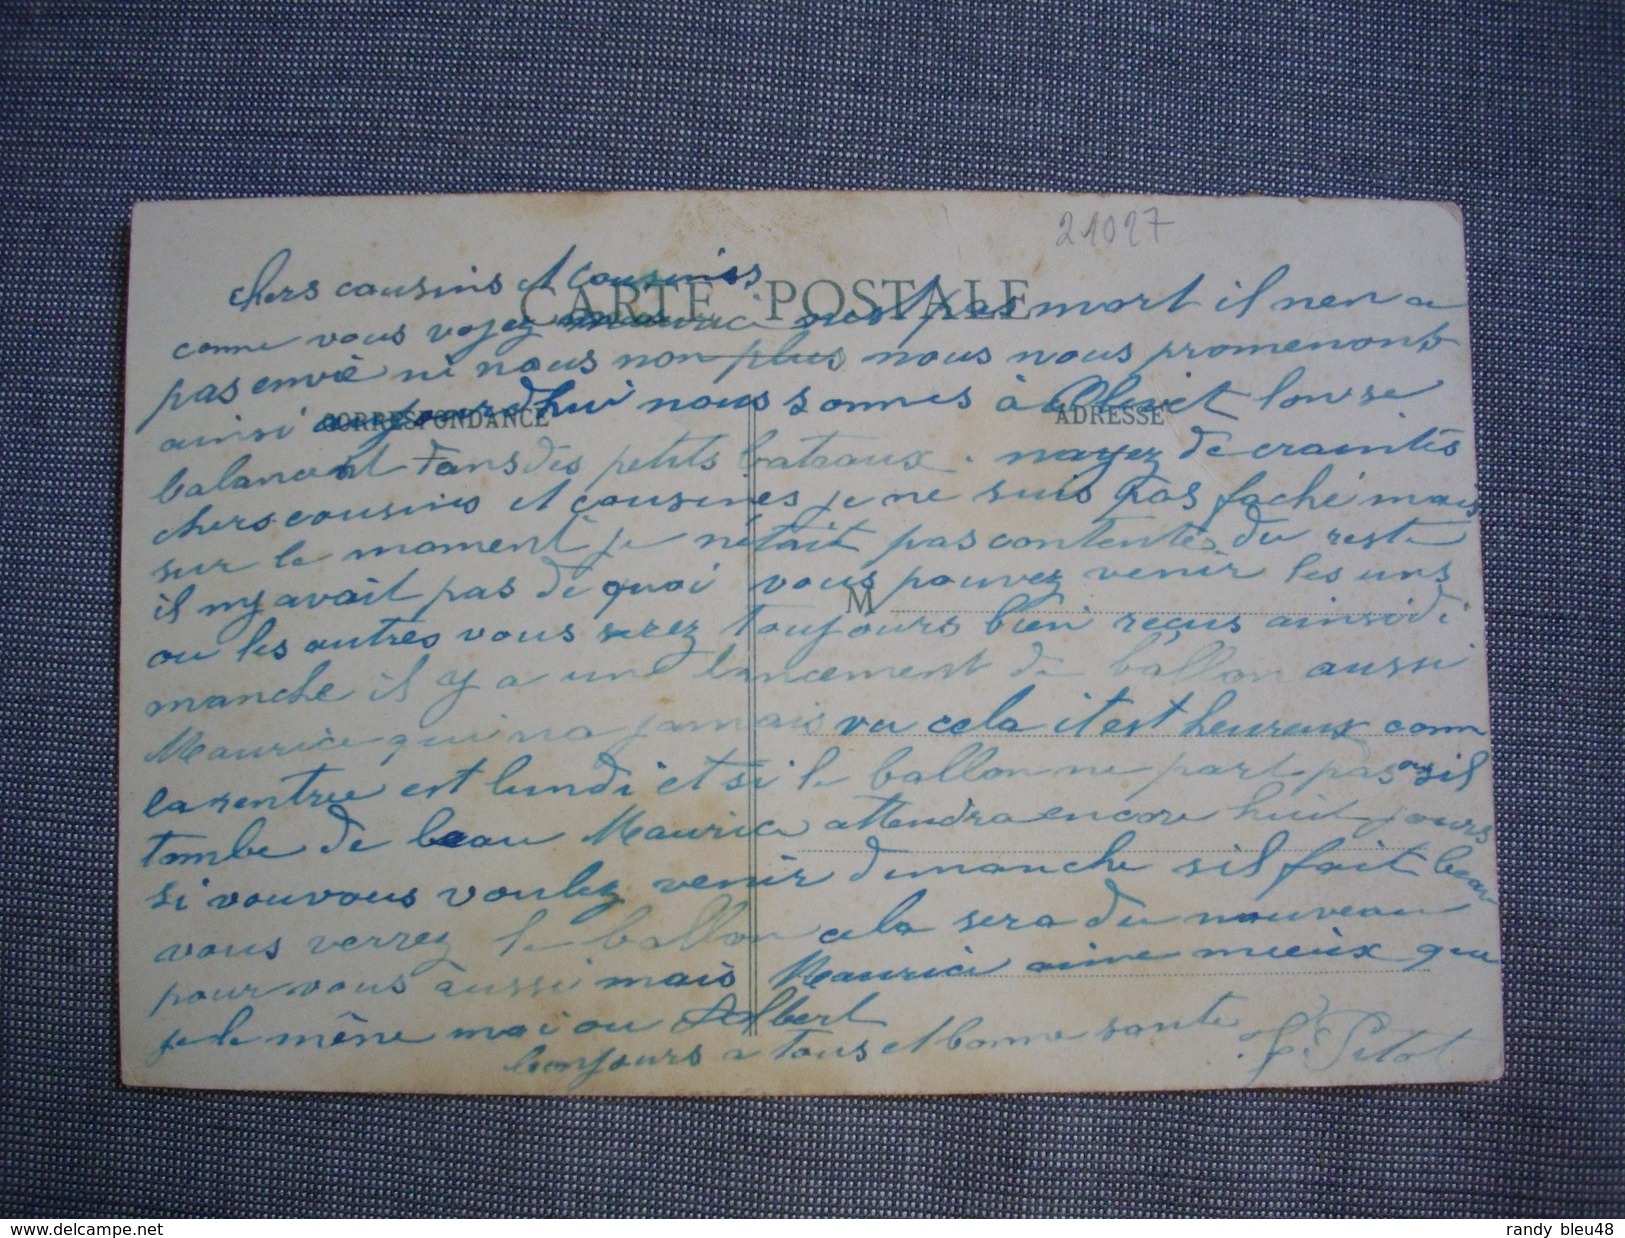 21027
CARTE POSTALE
chers cousins et cousines
comme vous voyez maurice nest pas mort il nen a
pas envie ni nous non plus nous nous promenons
CORRESPONDANCE
ADRESSE
ainsi aujourdhui nous sommes à
balancent dans des petits bateaux. nayez de craintes
chers cousins et cousines je ne suis pas faché mais
sur le moment je nétait pas contente du reste
il ny avait pas de quoi vous pouvez venir les uns
M
ou les autres vous serez toujours bien reçus ainsi di
manche il y a une lancement de ballon aussi
Maurice qui na jamais vu cela it est heureux comm
la rentrée est lundi et si le ballon ne part pas ou sil
tombe de leau Maurice attendra encore huit jours
si vouvous voulez venir dimanche sil fait beau
vous verrez le ballon cela sera du nouveau
pour vous aussi mais Maurice aime mieux que
je le mène moi ou Albert
bonjours a tous et bonne sante
Pitot
delcampe.net
randy_bleu48